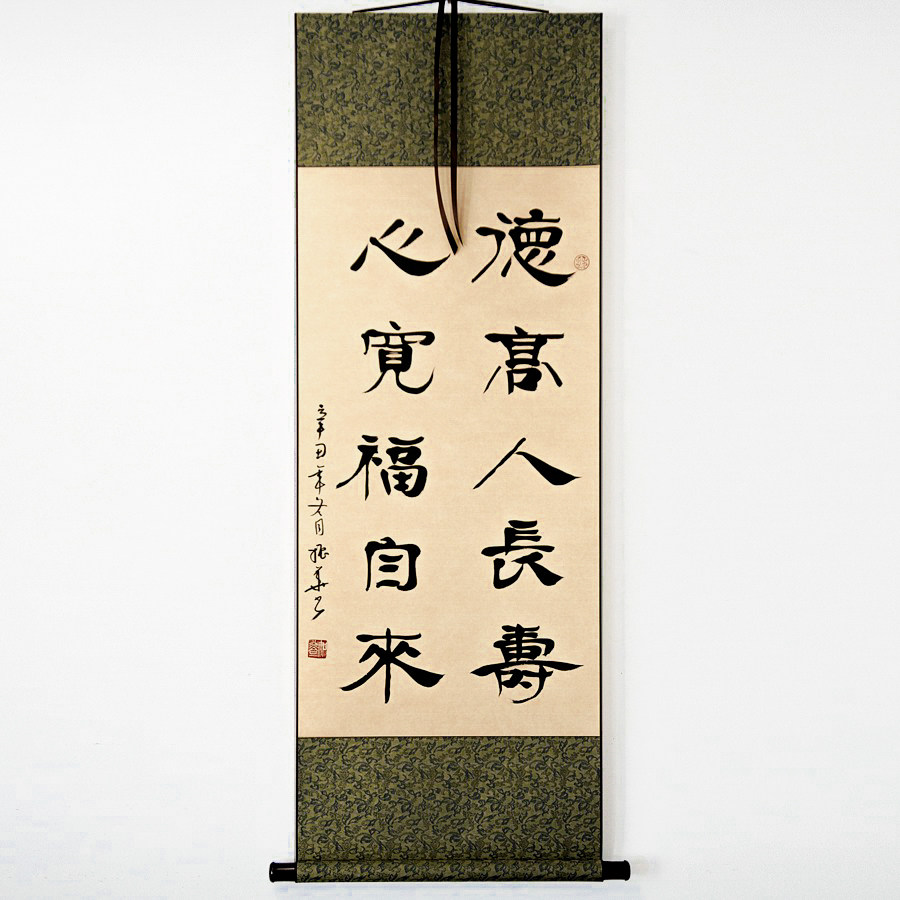 德高人長壽
心寬福自來
辛丑年冬月